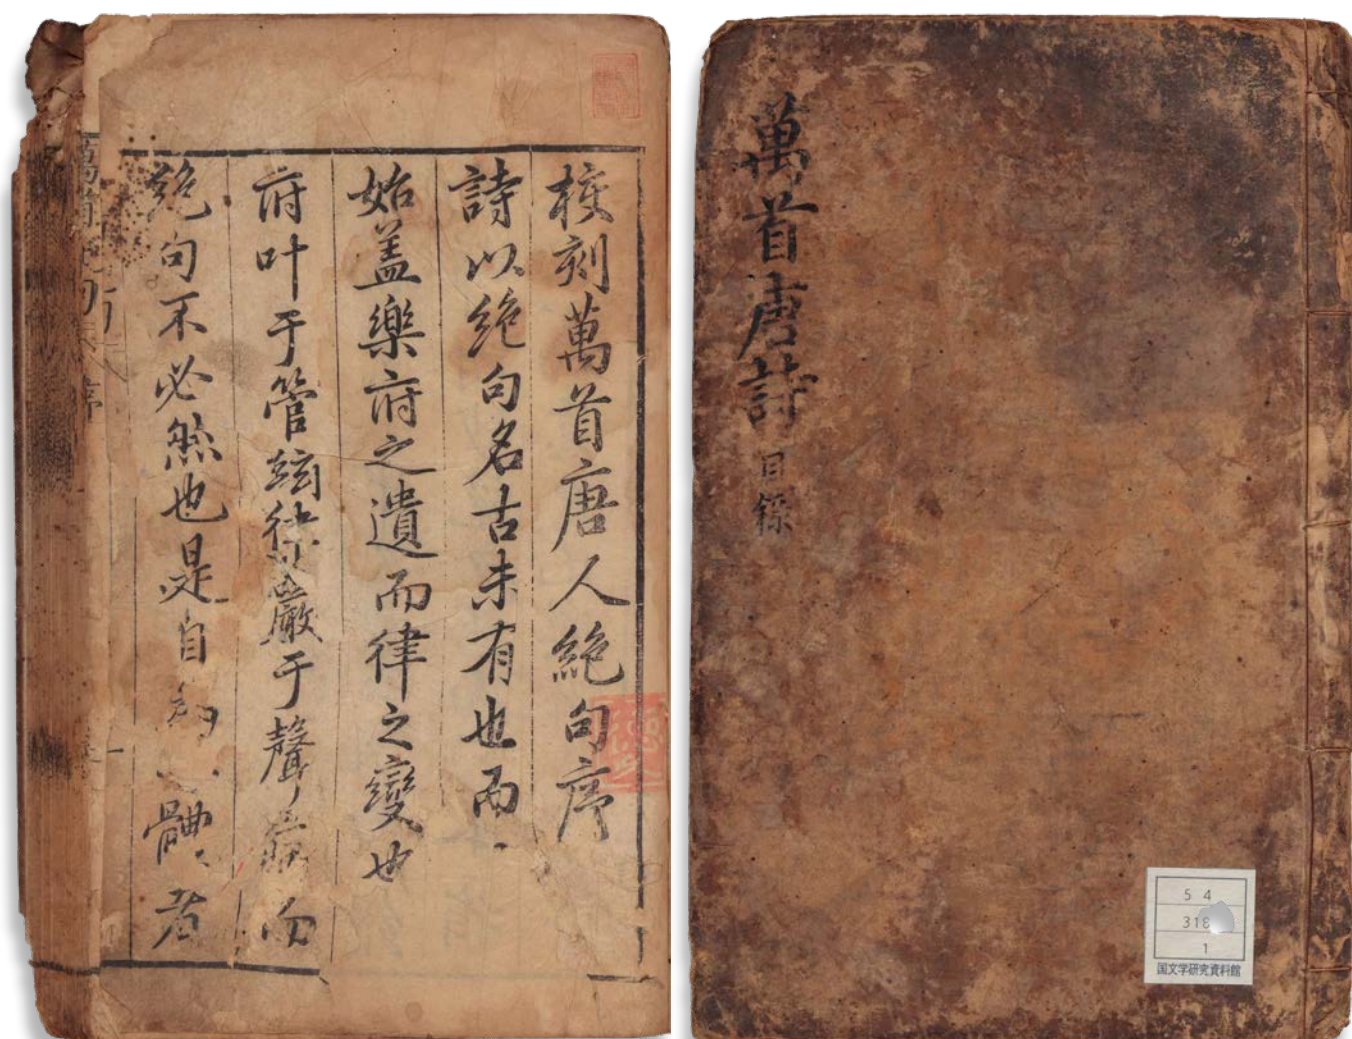 萬首唐詩 目錄
5 4
318
1
国文学研究資料館
校刻萬首唐人絶句序
詩以絶句名古未有也而
始盖樂府之遺而律之變也
府叶于管絃律嚴于聲而
絶句不必然也是自體者